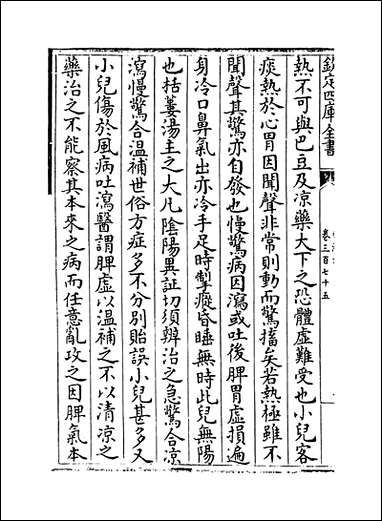 欽定四庫全書
卷三百七十五
熱不可與巴豆及凉藥大下之恐體虛難受也小兒客
痰熱於心胃因聞聲非常則動而驚搐矣若熱極雖不
聞聲其驚亦自發也慢驚病因瀉或吐後脾胃虛損遍
身冷口鼻氣出亦冷手足時掣瘲昏睡無時此兒無陽
也括蔞湯主之大凡陰陽異証切須辨治之急驚合凉
瀉慢驚合温補世俗方症多不分别貽誤小兒甚多又
小兒傷於風病吐瀉醫謂脾虛以温補之不以清凉之
藥治之不能察其本來之病而任意亂攻之因脾氣本